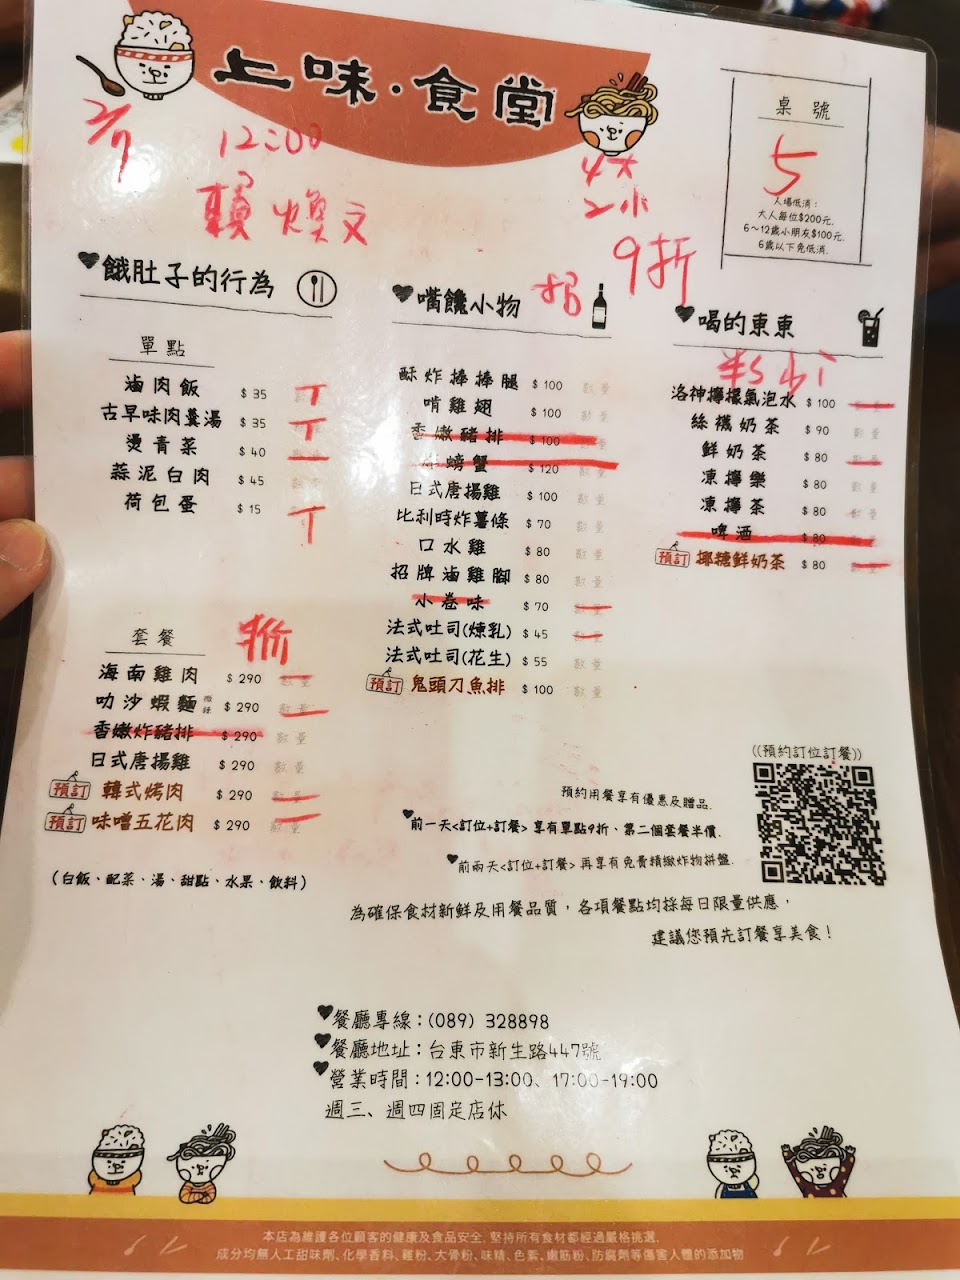 上味·食堂
2/7
12:00
賴煥文
4大
2小
9折
桌號
5
入場低消:
大人每位$200元.
6~12歲小朋友$100元.
6歲以下免低消.
餓肚子的行為
單點
滷肉飯 $ 35 數量 T
古早味肉羹湯 $ 35 數量 T
燙青菜 $ 40 數量 一
蒜泥白肉 $ 45 數量
荷包蛋 $ 15 數量 T
套餐
海南雞肉 $ 290 數量 一
叻沙蝦麵 微辣 $ 290 數量 一
香嫩炸豬排 $ 290 數量
日式唐揚雞 $ 290 數量
預訂 韓式烤肉 $ 290 數量 一
預訂 味噌五花肉 $ 290 數量 一
(白飯、配菜、湯、甜點、水果、飲料)
嘴饞小物
酥炸棒棒腿 $ 100 數量
啃雞翅 $ 100 數量
香嫩豬排 $ 100 數量
螃蟹 $ 120 數量
日式唐揚雞 $ 100 數量
比利時炸薯條 $ 70 數量
口水雞 $ 80 數量
招牌滷雞腳 $ 80 數量
小卷味 $ 70 數量 一
法式吐司(煉乳) $ 45 數量 一
法式吐司(花生) $ 55 數量
預訂 鬼頭刀魚排 $ 100 數量
喝的東東
洛神檸檬氣泡水 $ 100 數量 一
絲襪奶茶 $ 90 數量
鮮奶茶 $ 80 數量 一
凍檸樂 $ 80 數量
凍檸茶 $ 80 數量
啤酒 $ 80 數量
預訂 椰糖鮮奶茶 $ 80 數量 一
((預約訂位訂餐))
預約用餐享有優惠及贈品.
前一天<訂位+訂餐> 享有單點9折、第二個套餐半價.
前兩天<訂位+訂餐> 再享有免費精緻炸物拼盤.
為確保食材新鮮及用餐品質，各項餐點均採每日限量供應，
建議您預先訂餐享美食!
餐廳專線:(089) 328898
餐廳地址:台東市新生路447號
營業時間:12:00-13:00、17:00-19:00
週三、週四固定店休
本店為維護各位顧客的健康及食品安全, 堅持所有食材都經過嚴格挑選.
成分均無人工甜味劑、化學香料、雞粉、大骨粉、味精、色素、嫩筋粉、防腐劑等傷害人體的添加物